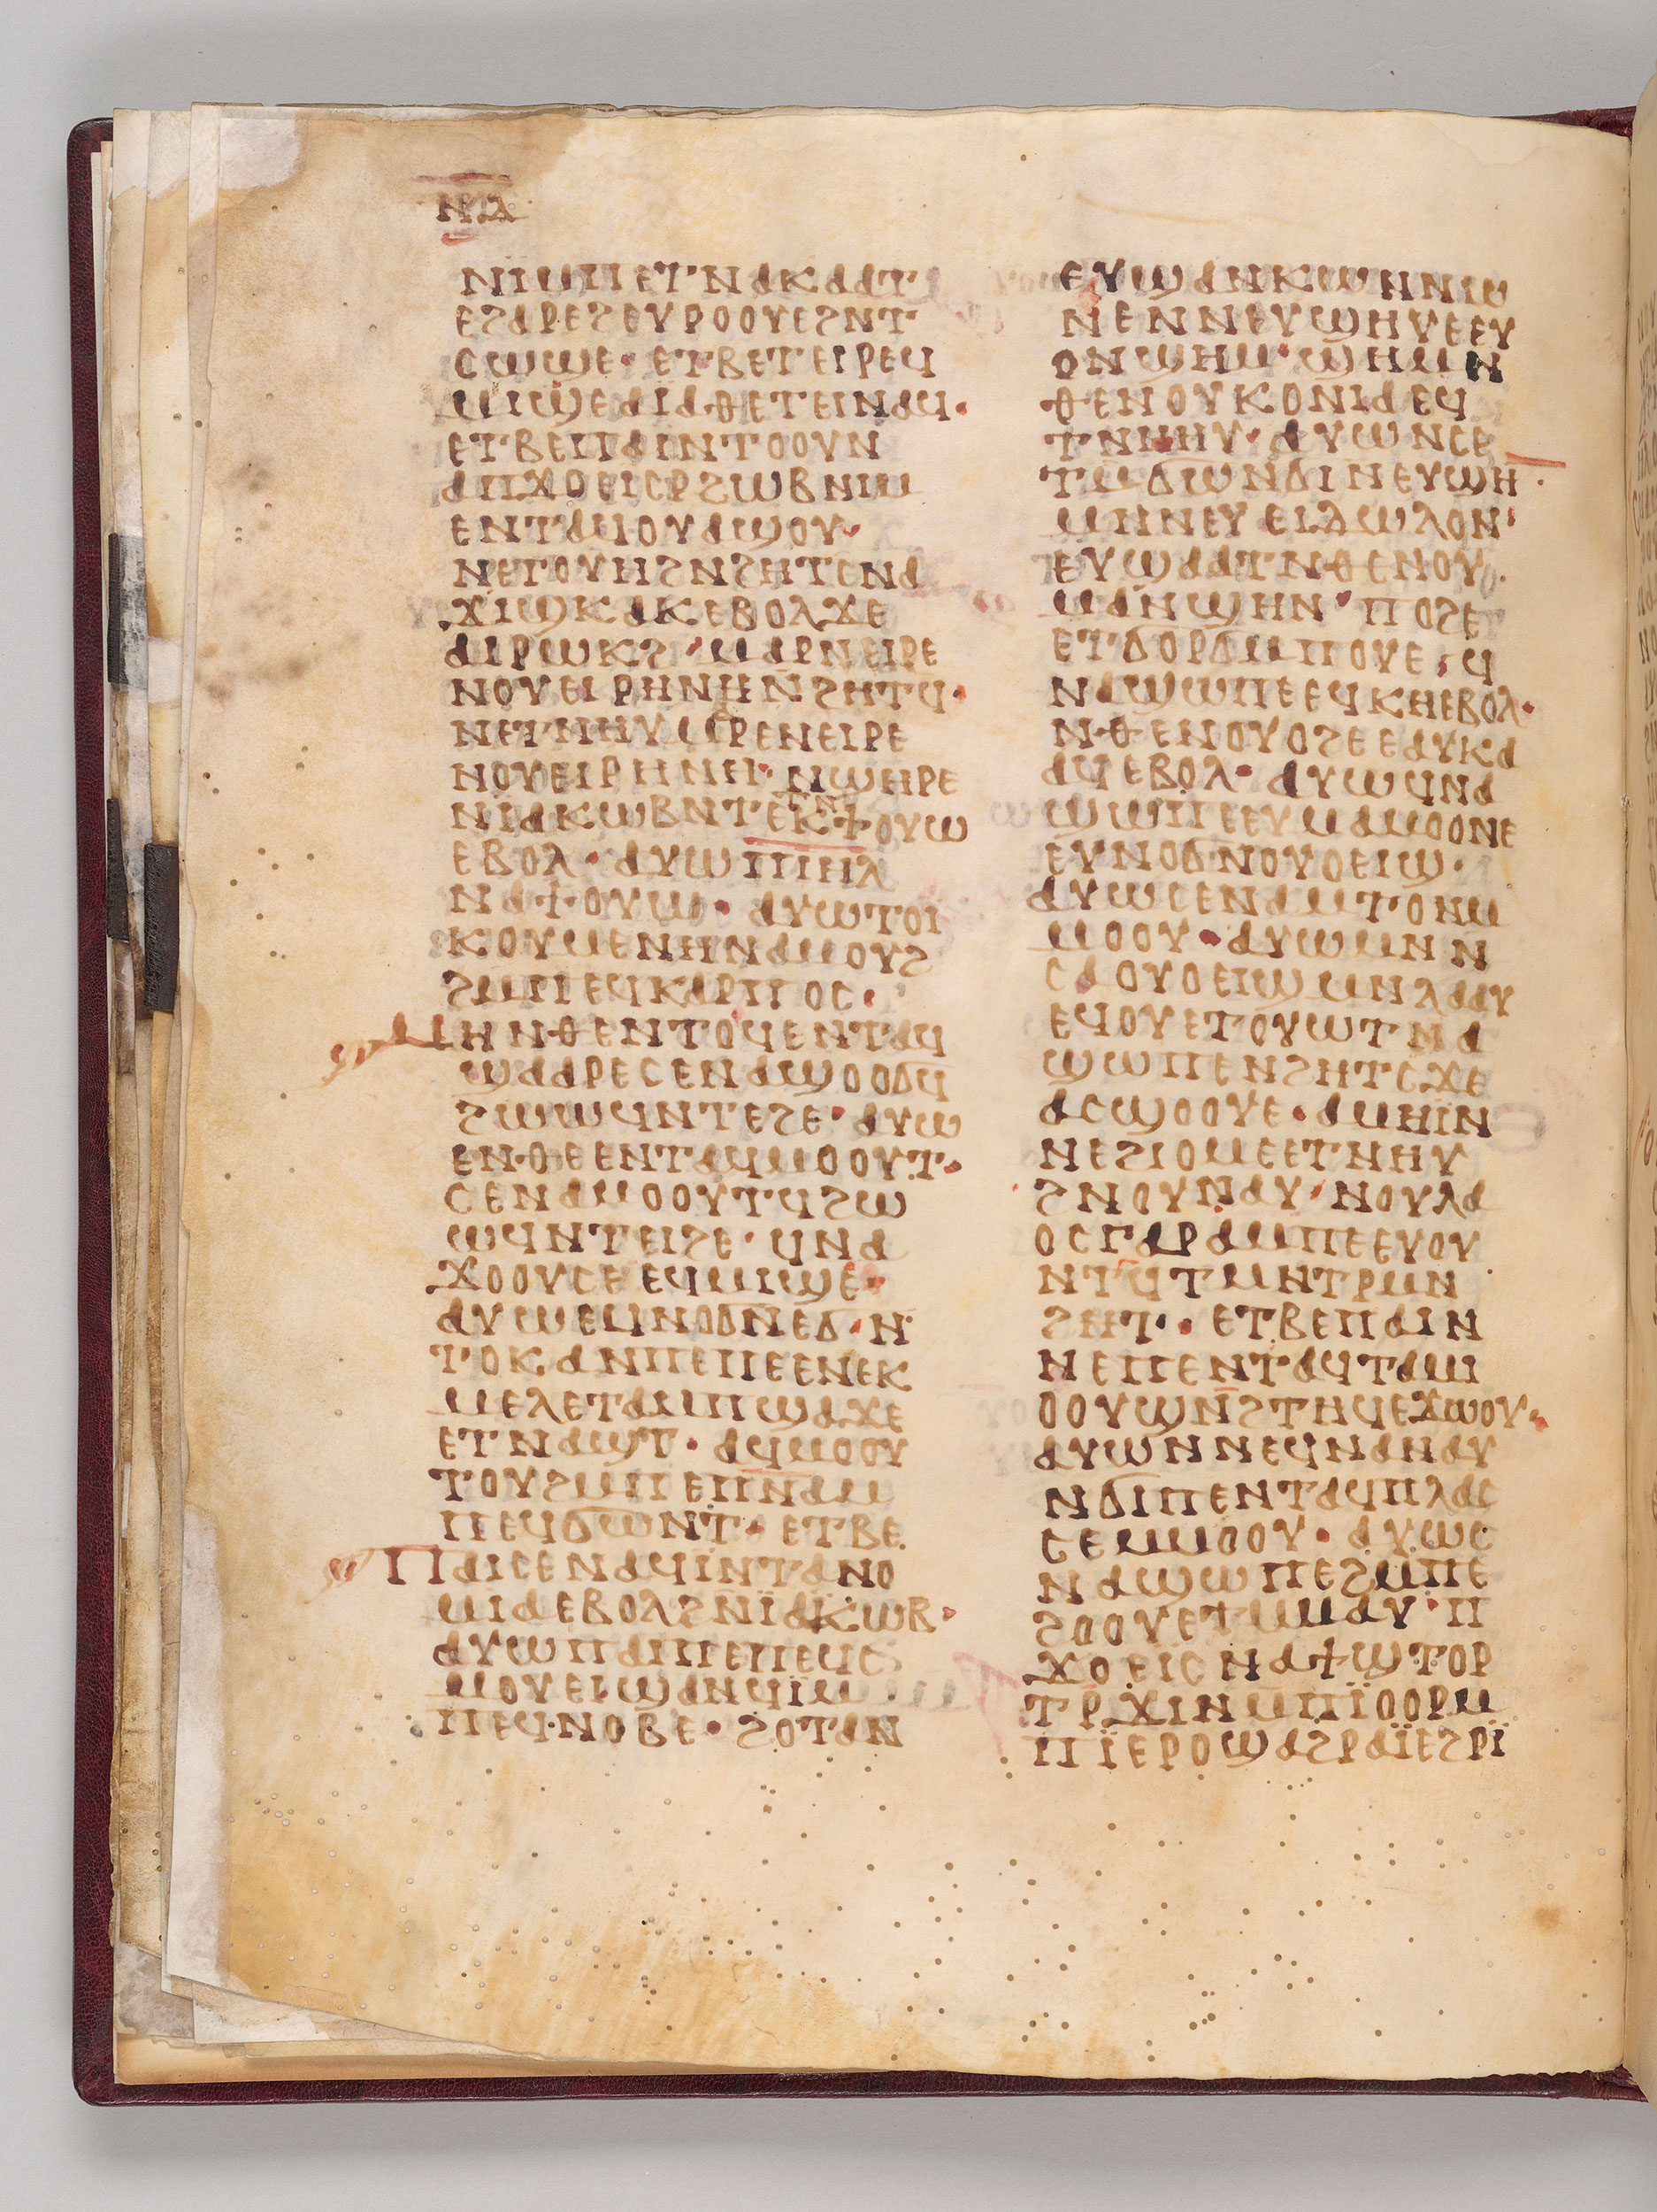 ⲛⲁ
ⲛⲓⲙⲡⲉⲧⲛⲁⲕⲁⲁⲧ
ⲉϩⲁⲣⲉϩⲉⲩⲣⲟⲟⲩⲉϩⲛⲧ
ⲥⲱϣⲉ· ⲉⲧⲃⲉⲧⲉⲓⲣⲉϥ
ⲙⲓϣⲉⲁⲓ̈ⲁⲑⲉⲧⲉⲓⲛⲁϥ·
ⲉⲧⲃⲉⲡⲁⲓⲛⲧⲟⲟⲩⲛ
ⲁⲡϫⲟⲉⲓⲥⲣϩⲱⲃⲛⲓⲙ
ⲉⲛⲧⲁϥⲟⲩⲁϣⲟⲩ·
ⲛⲉⲧⲟⲩⲏϩⲛϩⲏⲧⲉⲛⲁ
ϫⲓϣⲕⲁⲕⲉⲃⲟⲗϫⲉ
ⲁⲓⲣⲱⲕϩ· ⲙⲁⲣⲛⲉⲓⲣⲉ
ⲛⲟⲩⲉⲓⲣⲏⲛⲏⲛϩⲏⲧϥ·
ⲛⲉⲧⲛⲏⲩⲙⲁⲣⲉⲛⲉⲓⲣⲉ
ⲛⲟⲩⲉⲓⲣⲏⲛⲉⲓ· ⲛϣⲏⲣⲉ
ⲛⲓ̈ⲁⲕⲱⲃⲛⲧⲉⲕϯⲟⲩⲱ
ⲉⲃⲟⲗ· ⲁⲩⲱⲡⲓⲏⲗ
ⲛⲁϯⲟⲩⲱ· ⲁⲩⲱⲧⲟⲓ
ⲕⲟⲩⲙⲉⲛⲏⲛⲁⲙⲟⲩϩ
ϩⲙⲡⲉϥⲕⲁⲣⲡⲟⲥ·
ⲙⲏⲛⲑⲉⲛⲧⲟϥⲉⲛⲧⲁϥ
ϣⲁⲁⲣⲉⲥⲉⲛⲁϣⲟⲟϭϥ
ϩⲱⲱϥⲛⲧⲉϩⲉ· ⲁⲩⲱ
ⲉⲛⲑⲉⲉⲛⲧⲁϥⲙⲟⲟⲩⲧ·
ⲥⲉⲛⲁⲙⲟⲟⲩⲧϥϩⲱ
ⲱϥⲛⲧⲉⲓϩⲉ· ϥⲛⲁ
ϫⲟⲟⲩⲥⲉⲉϥⲙⲓϣⲉ·
ⲁⲩⲱⲉϥⲛⲟϭⲛⲉϭ· ⲛ
ⲧⲟⲕⲁⲛⲡⲉⲡⲉⲉⲛⲉⲕ
ⲙⲉⲗⲉⲧⲁⲙⲡϣⲁϫⲉ
ⲉⲧⲛⲁϣⲧ· ⲁϥⲙⲟⲟⲩ
ⲧⲟⲩϩⲙⲡⲉⲡⲛⲁⲙ
ⲡⲉϥϭⲱⲛⲧ· ⲉⲧⲃⲉ
ⲡⲁⲓⲥⲉⲛⲁϥⲓⲛⲧⲁⲛⲟ
ⲙⲓⲁⲉⲃⲟⲗϩⲛⲓ̈ⲁⲕⲱⲃ·
ⲁⲩⲱⲡⲁⲓⲡⲉⲡⲉϥⲥ
ⲙⲟⲩⲉⲓϣⲁⲛϥⲓ̈ⲙ
ⲡⲉϥⲛⲟⲃⲉ· ϩⲟⲧⲁⲛ
ⲉⲩϣⲁⲛⲕⲱⲛⲛⲓⲱ
ⲛⲉⲛⲛⲉⲩϣⲏⲩⲉⲉⲩ
ⲟⲛϣⲏⲙ· ϣⲏⲙⲛ
ⲑⲉⲛⲟⲩⲕⲟⲛⲓⲁⲉϥ
ⲧⲛⲛⲏⲩ· ⲁⲩⲱⲛⲥⲉ
ⲧⲙϭⲱⲛϭⲓⲛⲉⲩϣⲏ
ⲙⲛⲛⲉⲩⲉⲓⲇⲱⲗⲟⲛ·
ⲉⲩϣⲁⲁⲧⲛⲑⲉⲛⲟⲩ
ⲙⲁⲛϣⲏⲛ· ⲡⲟϩⲉ
ⲉⲧϭⲟⲣϭⲙⲡⲟⲩⲉ· ϥ
ⲛⲁϣⲱⲡⲉⲉϥⲕⲏⲉⲃⲟⲗ·
ⲛⲑⲉⲛⲟⲩⲟϩⲉⲉⲁⲩⲕⲁ
ⲁϥⲉⲃⲟⲗ· ⲁⲩⲱϥⲛⲁ
ϣⲱⲡⲉⲉⲩⲙⲁⲙⲟⲟⲛⲉ
ⲉⲩⲛⲟϭⲛⲟⲩⲟⲉⲓϣ·
ⲁⲩⲱⲥⲉⲛⲁⲙⲧⲟⲛⲙ
ⲙⲟⲟⲩ· ⲁⲩⲱⲙⲛⲛ
ⲥⲁⲟⲩⲟⲉⲓϣⲙⲛⲗⲁⲁⲩ
ⲉϥⲟⲩⲉⲧⲟⲩⲱⲧⲛⲁ
ϣⲱⲡⲉⲛϩⲏⲧⲥϫⲉ
ⲁⲥϣⲟⲟⲩⲉ· ⲁⲙⲏⲓ̈ⲛ
ⲛⲉϩⲓⲟⲙⲉⲉⲧⲛⲏⲩ
ϩⲛⲟⲩⲛⲁⲩ· ⲛⲟⲩⲗⲁ
ⲟⲥⲅⲁⲣⲁⲙⲡⲉⲉⲩⲟⲩ
ⲛⲧϥⲧⲙⲛⲧⲣⲙⲛ
ϩⲏⲧ· ⲉⲧⲃⲉⲡⲁⲓⲛ
ⲛⲉⲡⲉⲛⲧⲁϥⲧⲁⲙⲓ
ⲟⲟⲩϣⲛϩⲧⲏϥⲉϫⲱⲟⲩ·
ⲁⲩⲱⲛⲛⲉϥⲛⲁⲛⲁⲩ
ⲛϭⲓⲡⲉⲛⲧⲁϥⲡⲗⲁⲥ
ⲥⲉⲙⲙⲟⲟⲩ· ⲁⲩⲱⲥ
ⲛⲁϣⲱⲡⲉϩⲙⲡⲉ
ϩⲟⲟⲩⲉⲧⲙⲙⲁⲩ· ⲡ
ϫⲟⲉⲓⲥⲛⲁϯϣⲧⲟⲣ
ⲧⲣϫⲓⲛⲙⲡⲓ̈ⲟⲟⲣⲙ
ⲡⲓ̈ⲉⲣⲟϣⲁϩⲣⲁⲓ̈ⲉϩⲣⲓ̈